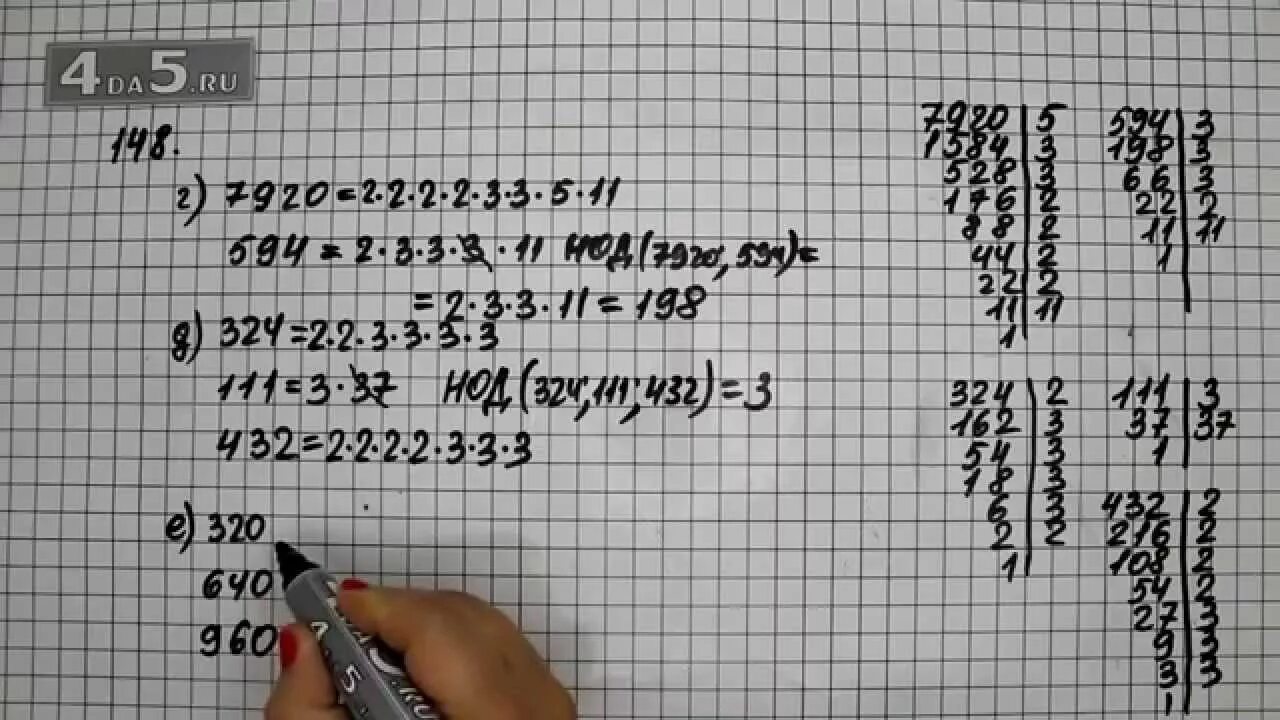 4DA5.RU
148.
г) 7920=2·2·2·2·3·3·5·11
594=2·3·3·3·11 НОД(7920;594)=
=2·3·3·11=198
д) 324=2·2·3·3·3·3
111=3·37 НОД(324;111;432)=3
432=2·2·2·2·3·3·3
е) 320
640
960
7920 5
1584 3
528 3
176 2
88 2
44 2
22 2
11 11
1
594 3
198 3
66 3
22 2
11 11
1
324 2
162 3
54 3
18 3
6 3
2 2
1
111 3
37 37
1
432 2
216 2
108 2
54 2
27 3
9 3
3 3
1